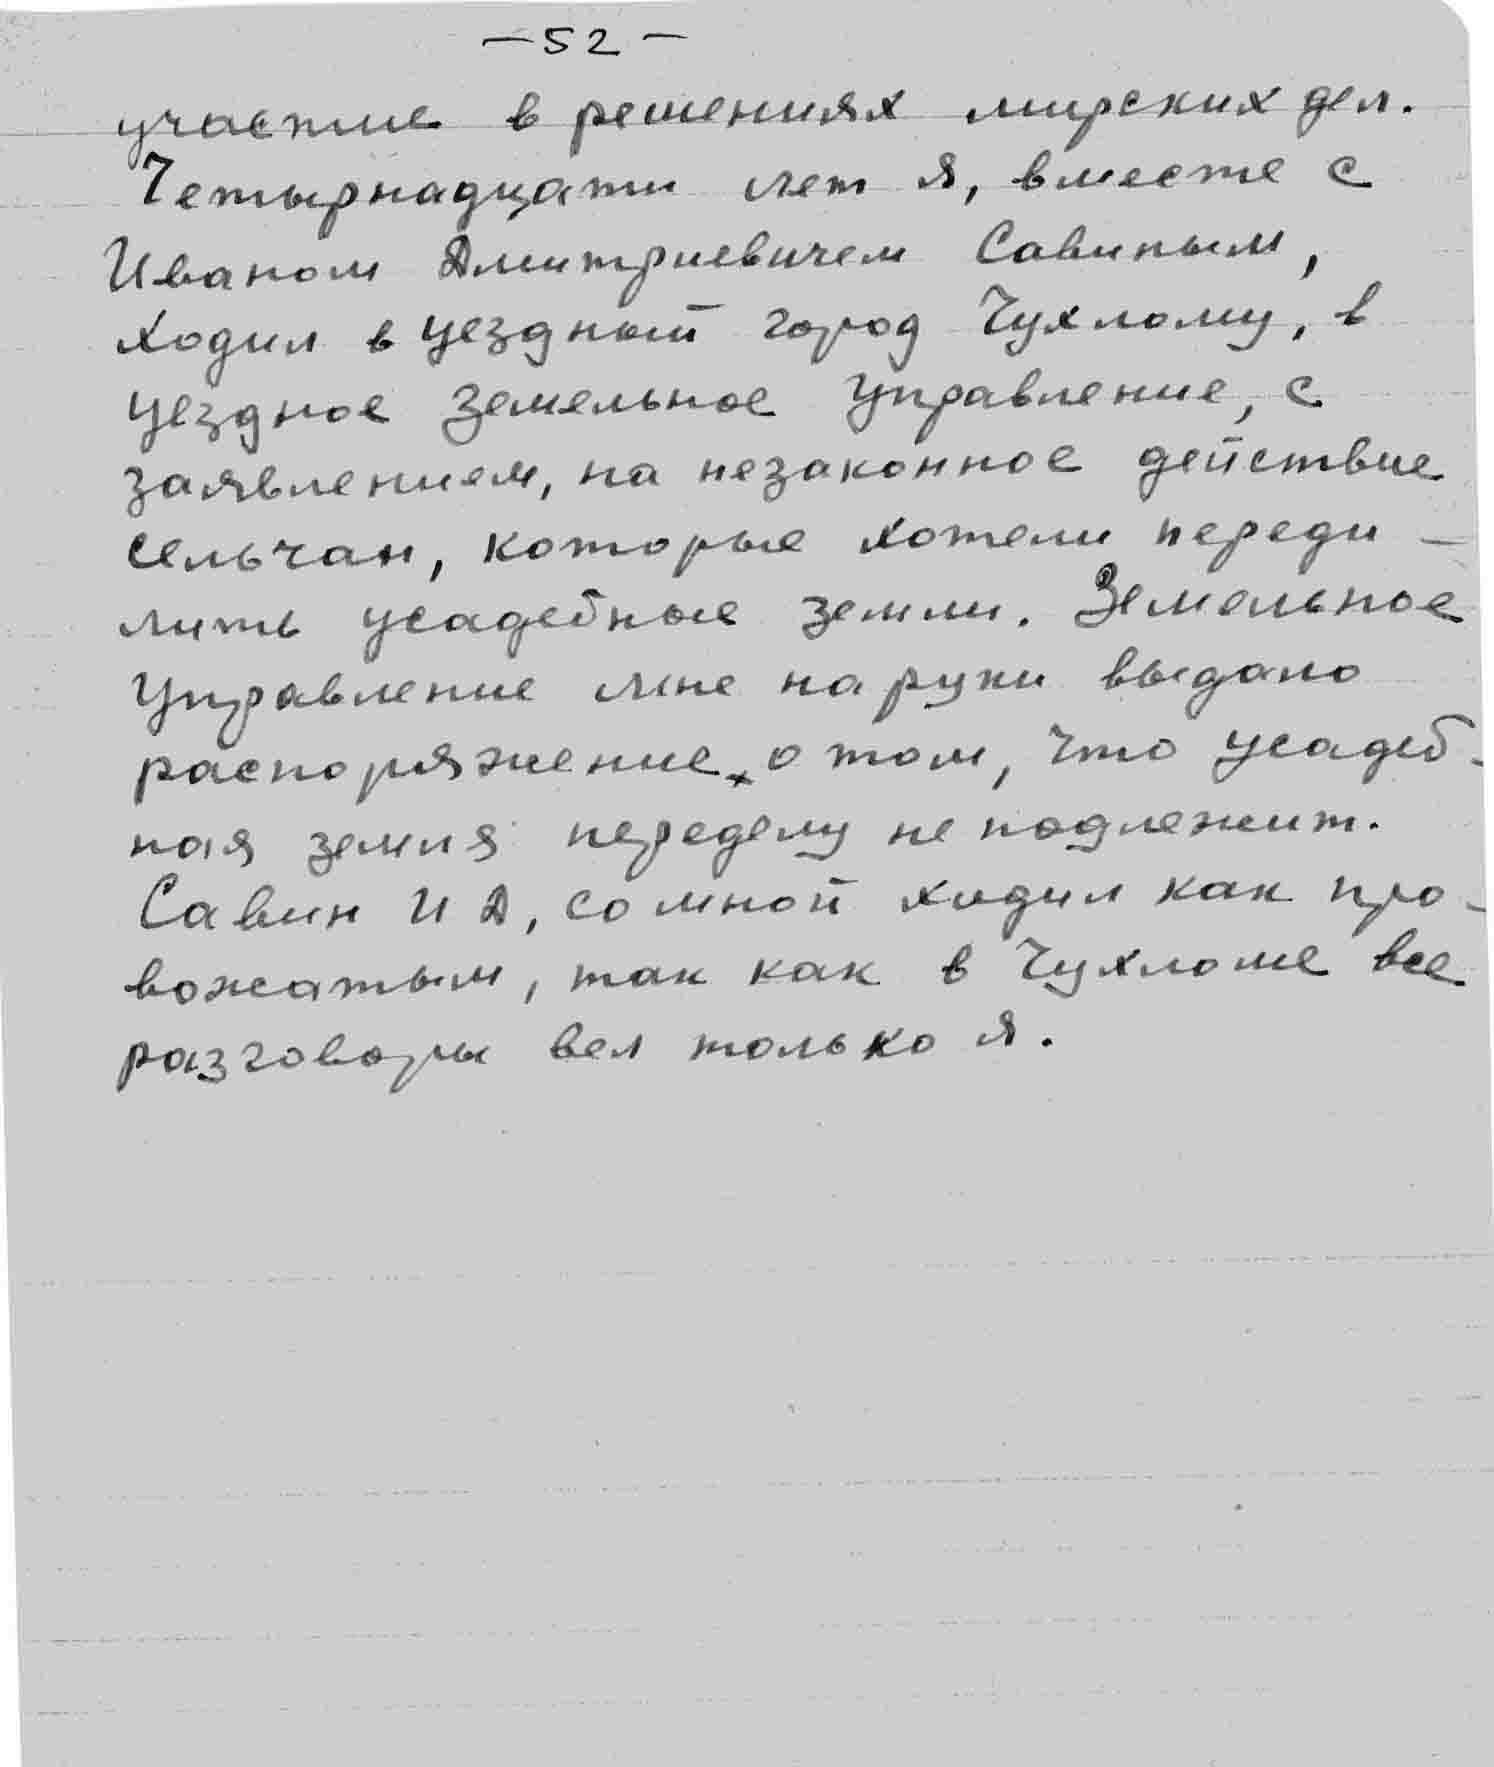 — 52 —
участие в решениях мирских дел.
Четырнадцати лет я, вместе с
Иваном Дмитриевичем Савиным,
ходил в уездный город Чухлому, в
уездное земельное управление, с
заявлением, на незаконное действие
сельчан, которые хотели переди-
лить усадебные земли. Земельное
управление мне на руки выдало
распоряжение, о том, что усадеб-
ная земля переделу не подлежит.
Савин И Д, со мной ходил как про-
вожатым, так как в Чухломе все
разговоры вел только я.